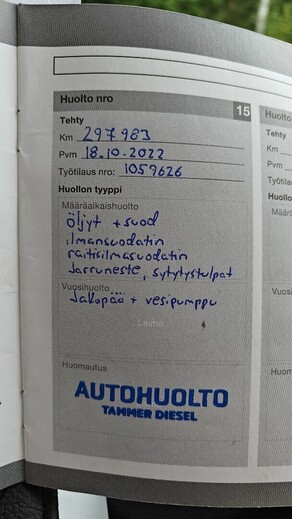 Huolto nro 15
Tehty
Km 297983
Pvm 18.10.2022
Työtilaus nro: 1057626
Huollon tyyppi
Määräaikaishuolto
Öljyt + suod
ilmansuodatin
raitisilmasuodatin
Jarruneste, sytytystulpat
Vuosihuolto
Jakopää + vesipumppu
Leima
Huomautus
AUTOHUOLTO
TAMMER DIESEL
Huolto
Tehty
Km
Pvm
Työtilau
Huollo
Määrä
Vuosi
Huom